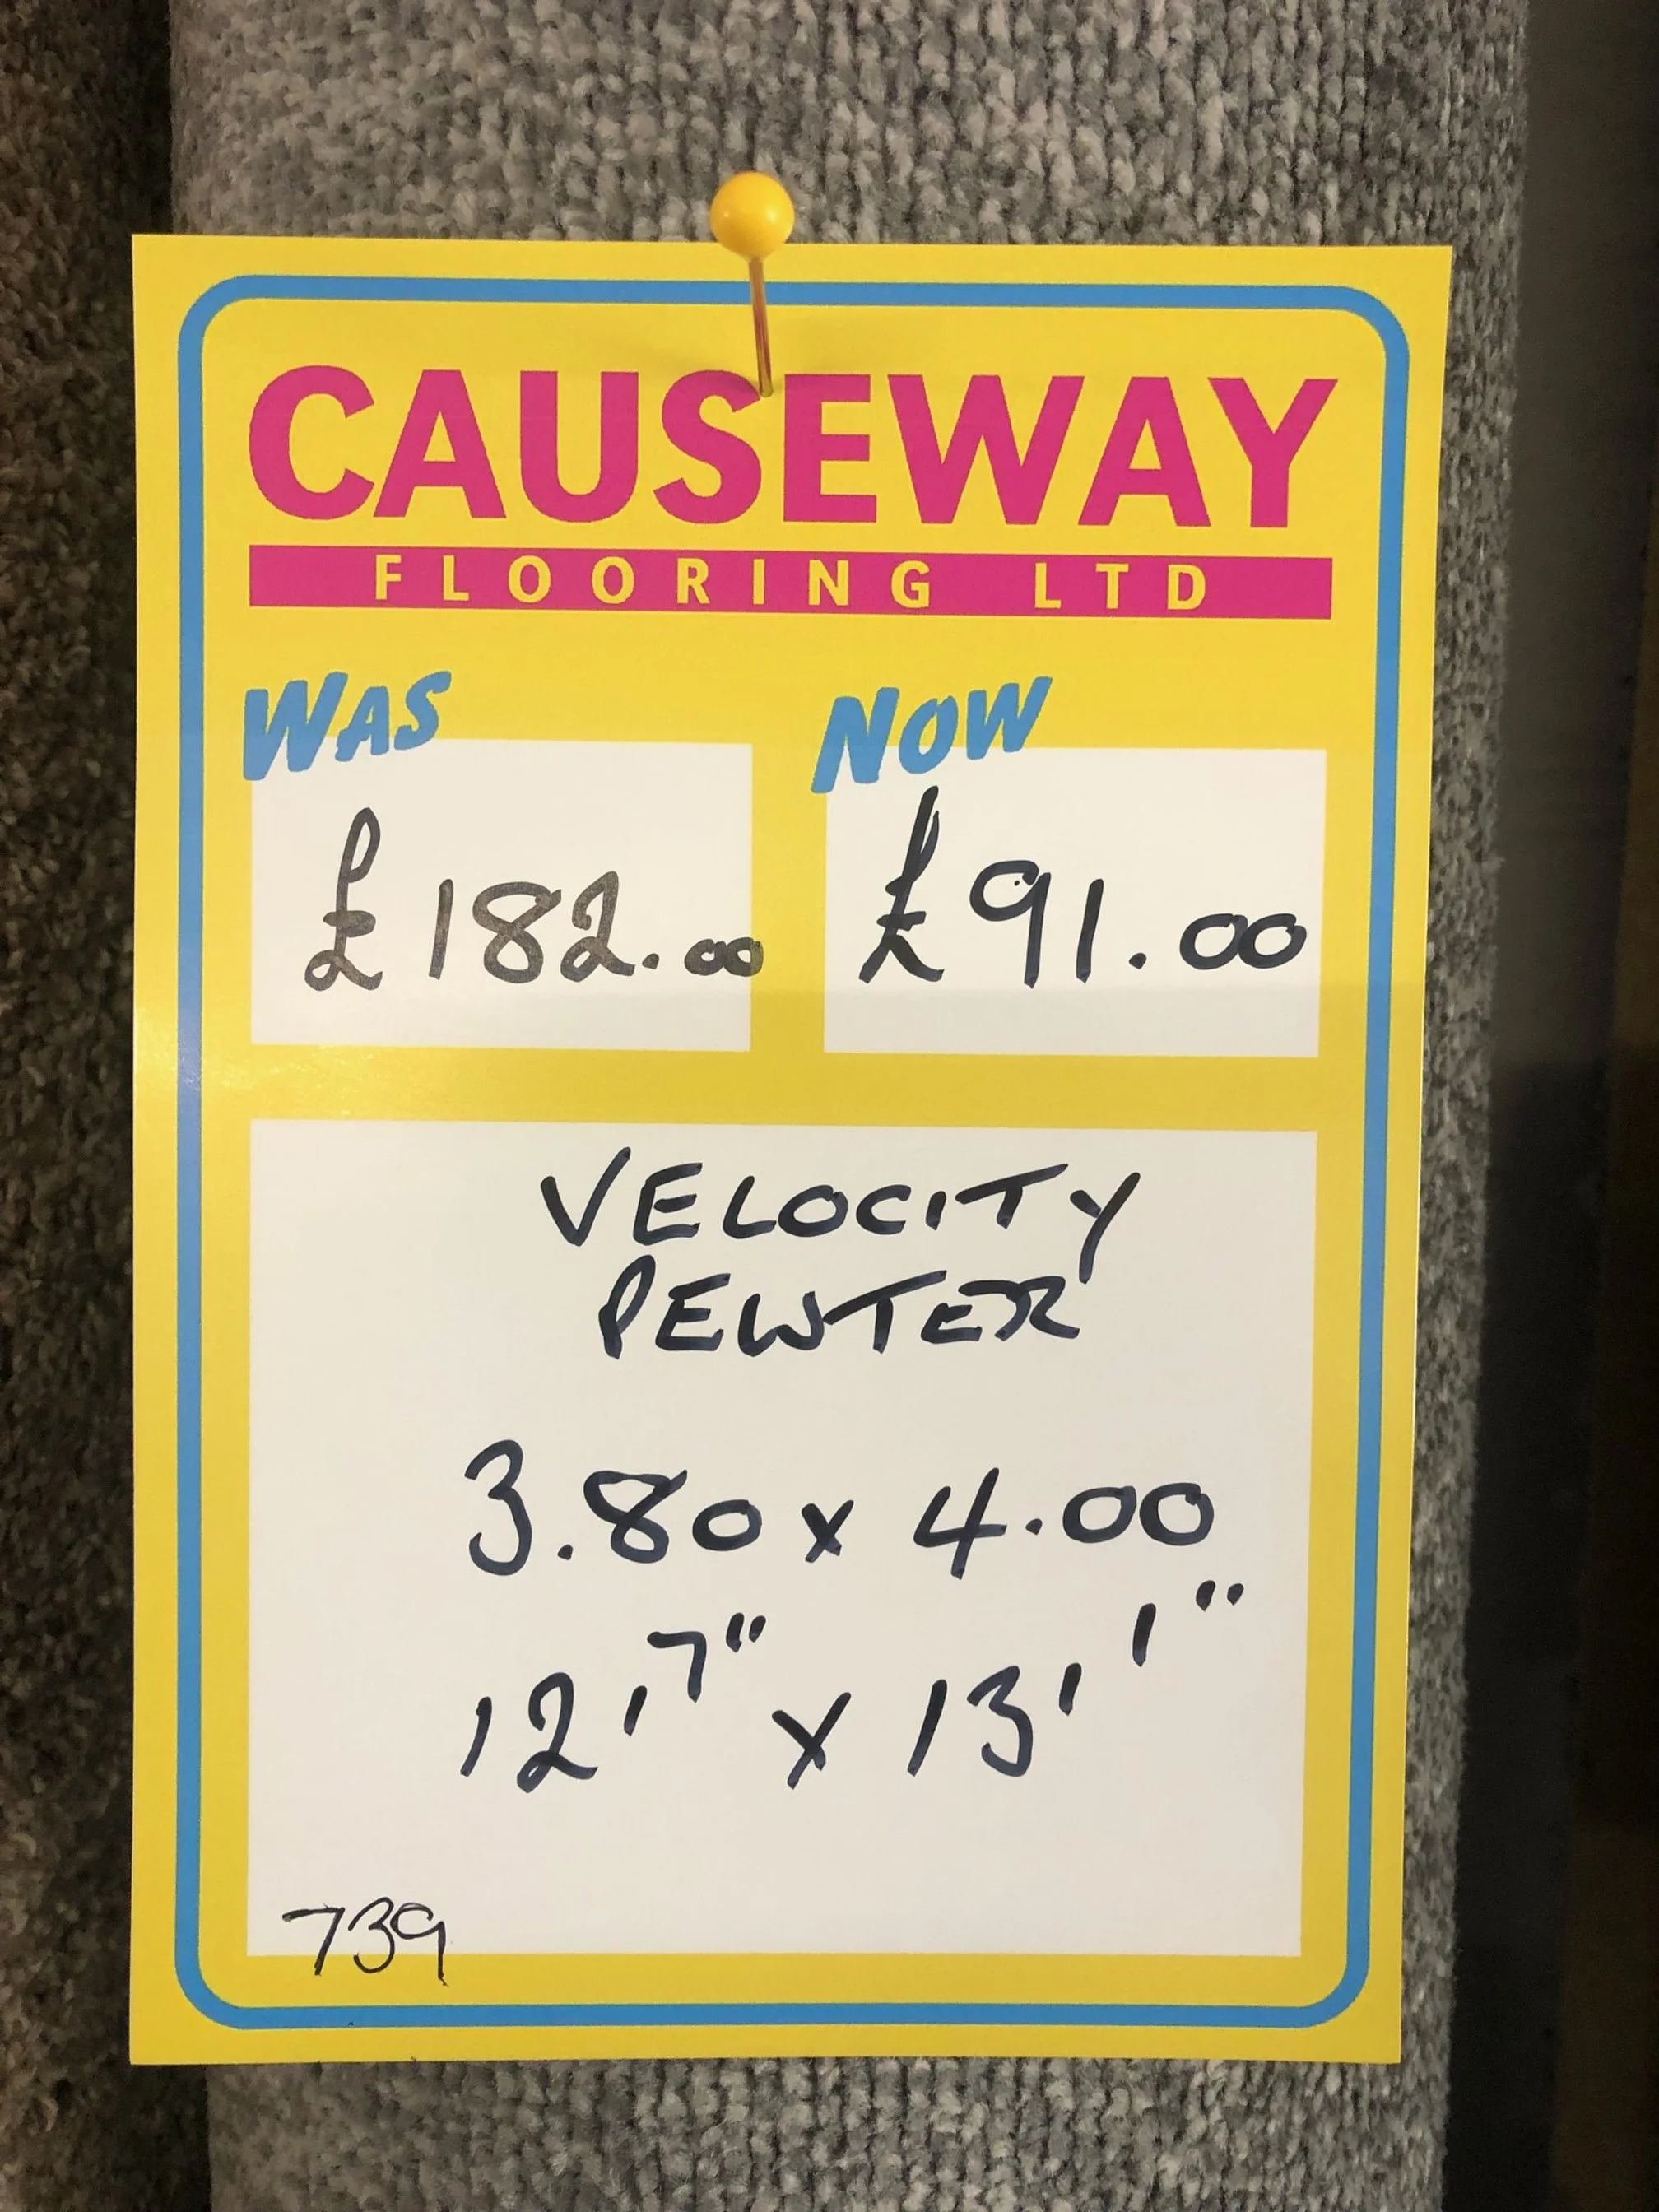 CAUSEWAY
FLOORING LTD
WAS NOW
£182.00 £91.00
VELOCITY
PEWTER
3.80 x 4.00
12'7" x 13'1"
739